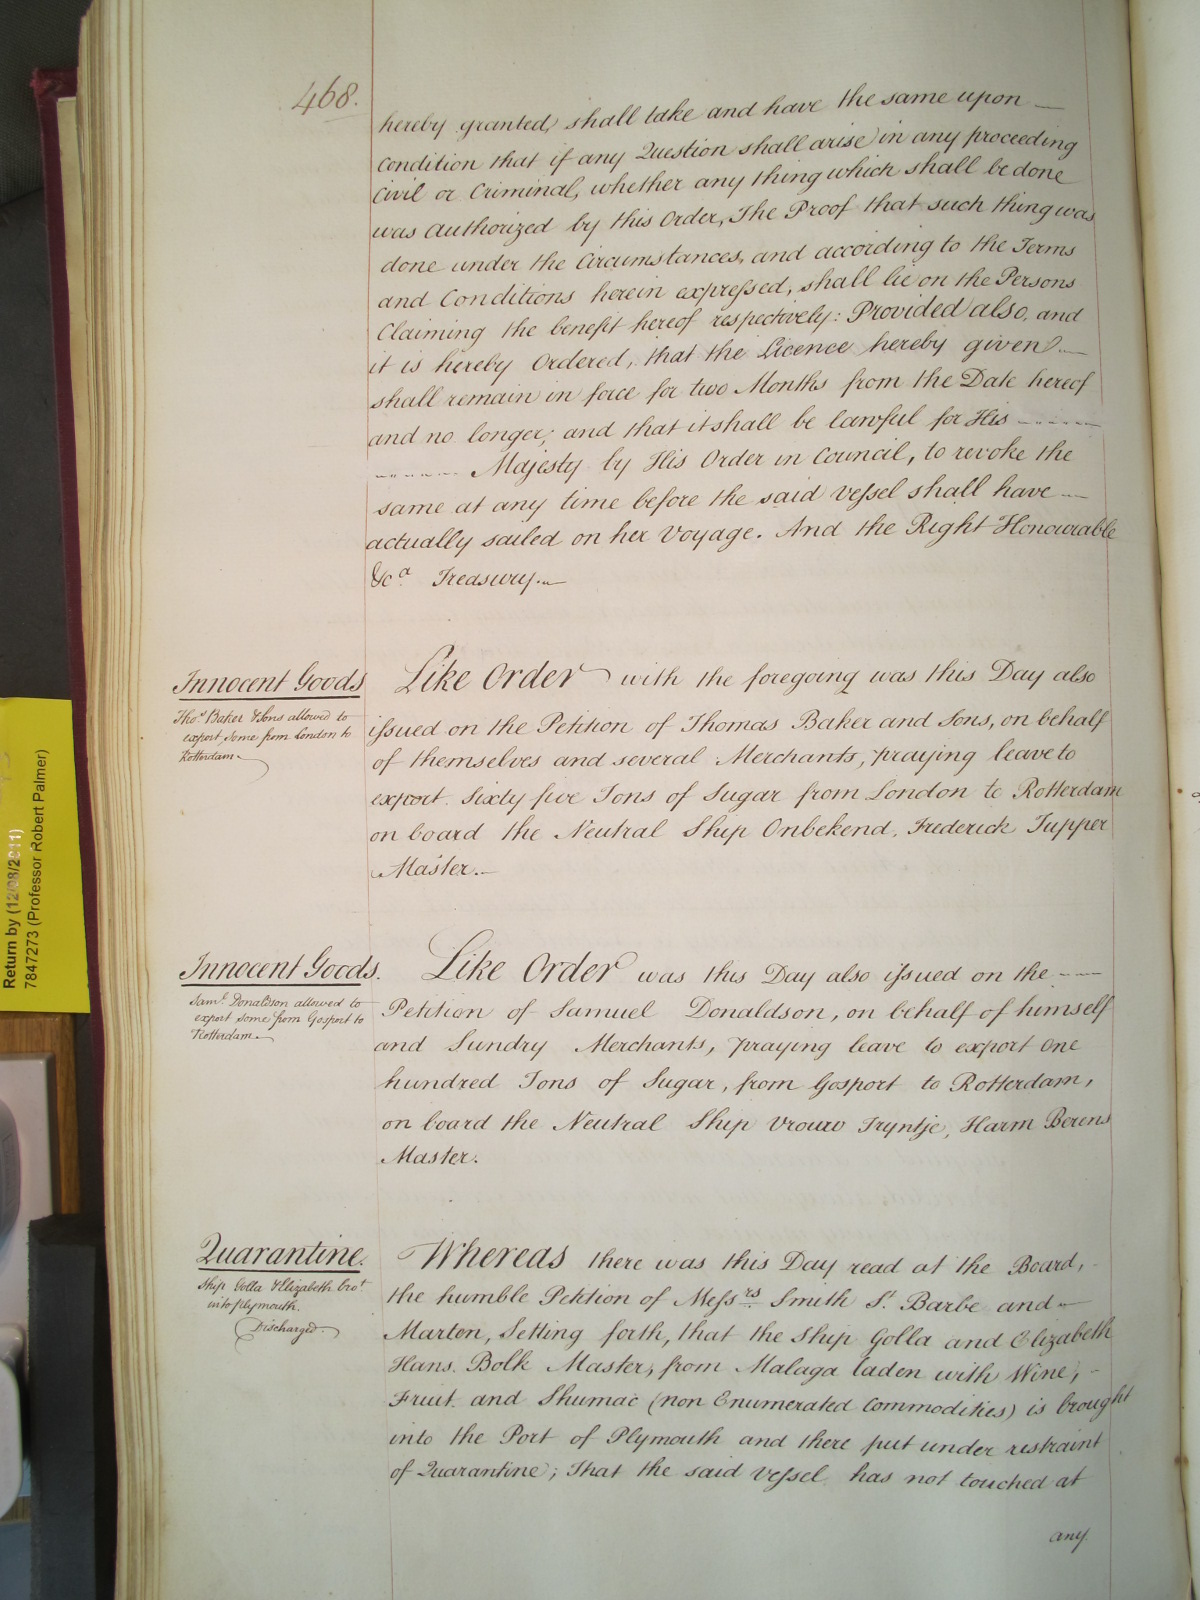 468.
hereby granted, shall take and have the same upon —
Condition that if any Question shall arise in any proceeding
Civil or Criminal, whether any thing which shall be done
was Authorized by this Order, The Proof that such thing was
done under the Circumstances, and according to the Terms
and Conditions herein expressed, shall lie on the Persons
Claiming the benefit hereof respectively: Provided also, and
it is hereby Ordered, that the Licence hereby given —
shall remain in force for two Months from the Date hereof
and no longer; and that it shall be lawful for His
Majesty by His Order in Council, to revoke the
same at any time before the said Vessel shall have —
actually sailed on her Voyage. And the Right Honourable
&ca Treasury. —
Innocent Goods
Thos. Baker & Sons allowed to
export some from London to
Rotterdam.
Like Order with the foregoing was this Day also
issued on the Petition of Thomas Baker and Sons, on behalf
of themselves and several Merchants, praying leave to
export Sixty five Tons of Sugar from London to Rotterdam
on board the Neutral Ship Onbekend, Frederick Tupper
Master. —
Innocent Goods.
Saml. Donaldson allowed to
export some from Gosport to
Rotterdam.
Like Order was this Day also issued on the —
Petition of Samuel Donaldson, on behalf of himself
and Sundry Merchants, praying leave to export One
hundred Tons of Sugar, from Gosport to Rotterdam,
on board the Neutral Ship Vrouw Tryntje, Harm Berens
Master.
Quarantine.
Ship Golla & Elizabeth brot.
into Plymouth.
Discharged.
Whereas there was this Day read at the Board,
the humble Petition of Messrs Smith St. Barbe and
Marten, Setting forth, that the Ship Golla and Elizabeth
Hans. Bolk Master, from Malaga laden with Wine, -
Fruit and Shumac (non Enumerated Commodities) is brought
into the Port of Plymouth and there put under restraint
of Quarantine; That the said Vessel has not touched at
any
Return by (12/08/2011)
7847273 (Professor Robert Palmer)